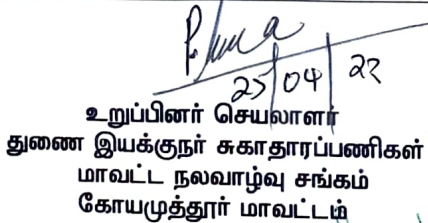 25/04/22
உறுப்பினர் செயலாளர்
துணை இயக்குநர் சுகாதாரப்பணிகள்
மாவட்ட நலவாழ்வு சங்கம்
கோயமுத்தூர் மாவட்டம்